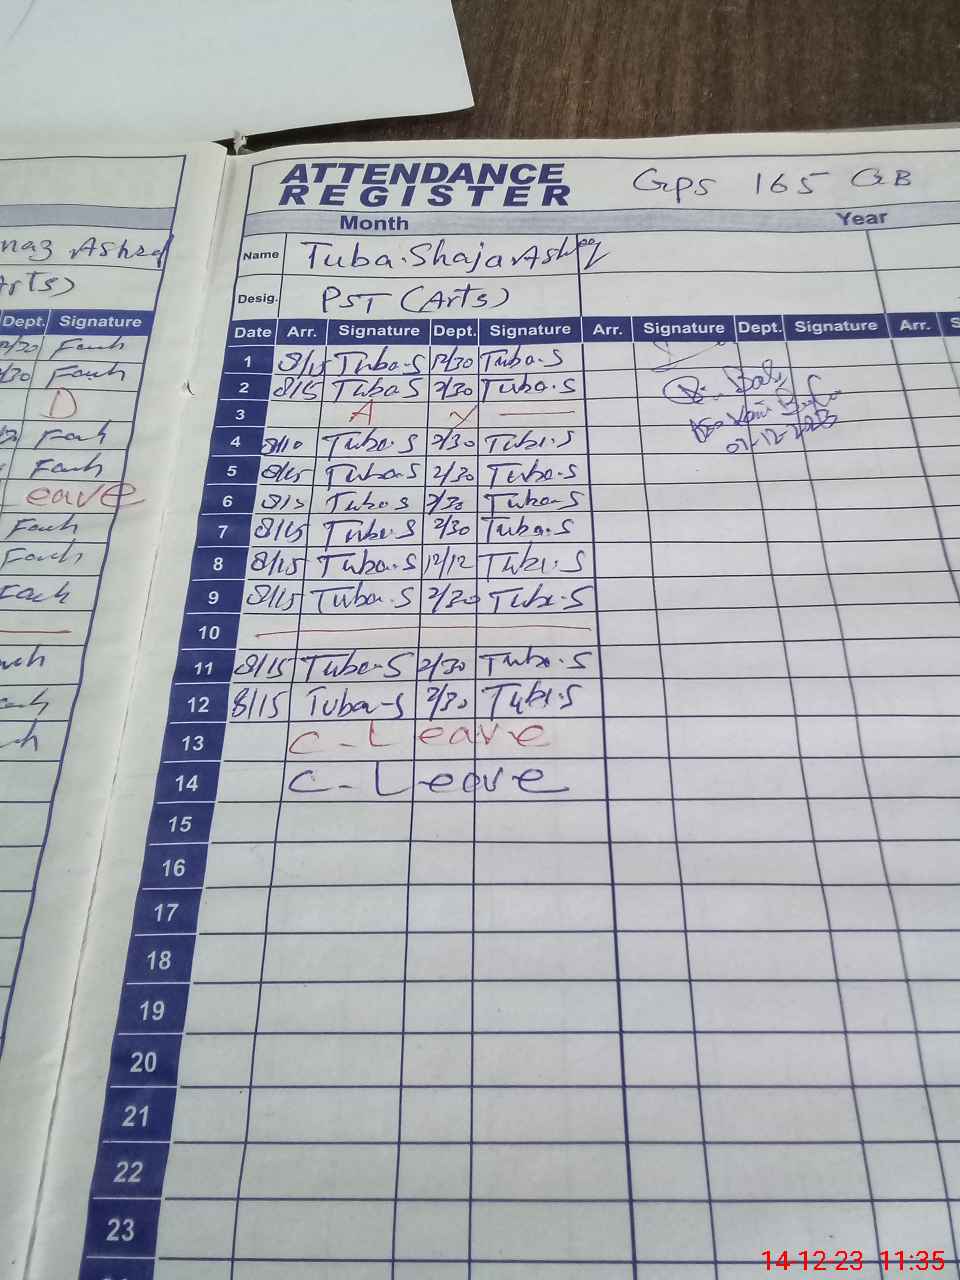 Ashraf
Arts)
Dept. Signature
Fouh
Fouh
D
Leave
ATTENDANCE
REGISTER
GPS 165 GB
Month Year
Name Tuba Shaja Ashfaq
Desig. PST (Arts)
Date Arr. Signature Dept. Signature Arr. Signature Dept. Signature Arr.
1 8/15 Tuba-S 12/30 Tuba-S
2 8/15 Tuba S 2/30 Tuba-S
3 A
4 8/10 Tuba-S 2/30 Tuba-S
5 8/15 Tuba-S 2/30 Tuba-S
6 8/15 Tuba-S 2/30 Tuba-S
7 8/15 Tuba-S 2/30 Tuba-S
8 8/15 Tuba-S 12/12 Tuba-S
9 8/15 Tuba-S 2/30 Tuba-S
10
11 8/15 Tuba-S 2/30 Tuba-S
12 8/15 Tuba-S 2/30 Tuba-S
13 C-Leave
14 C-Leave
15
16
17
18
19
20
21
22
23
14-12-23 11:35